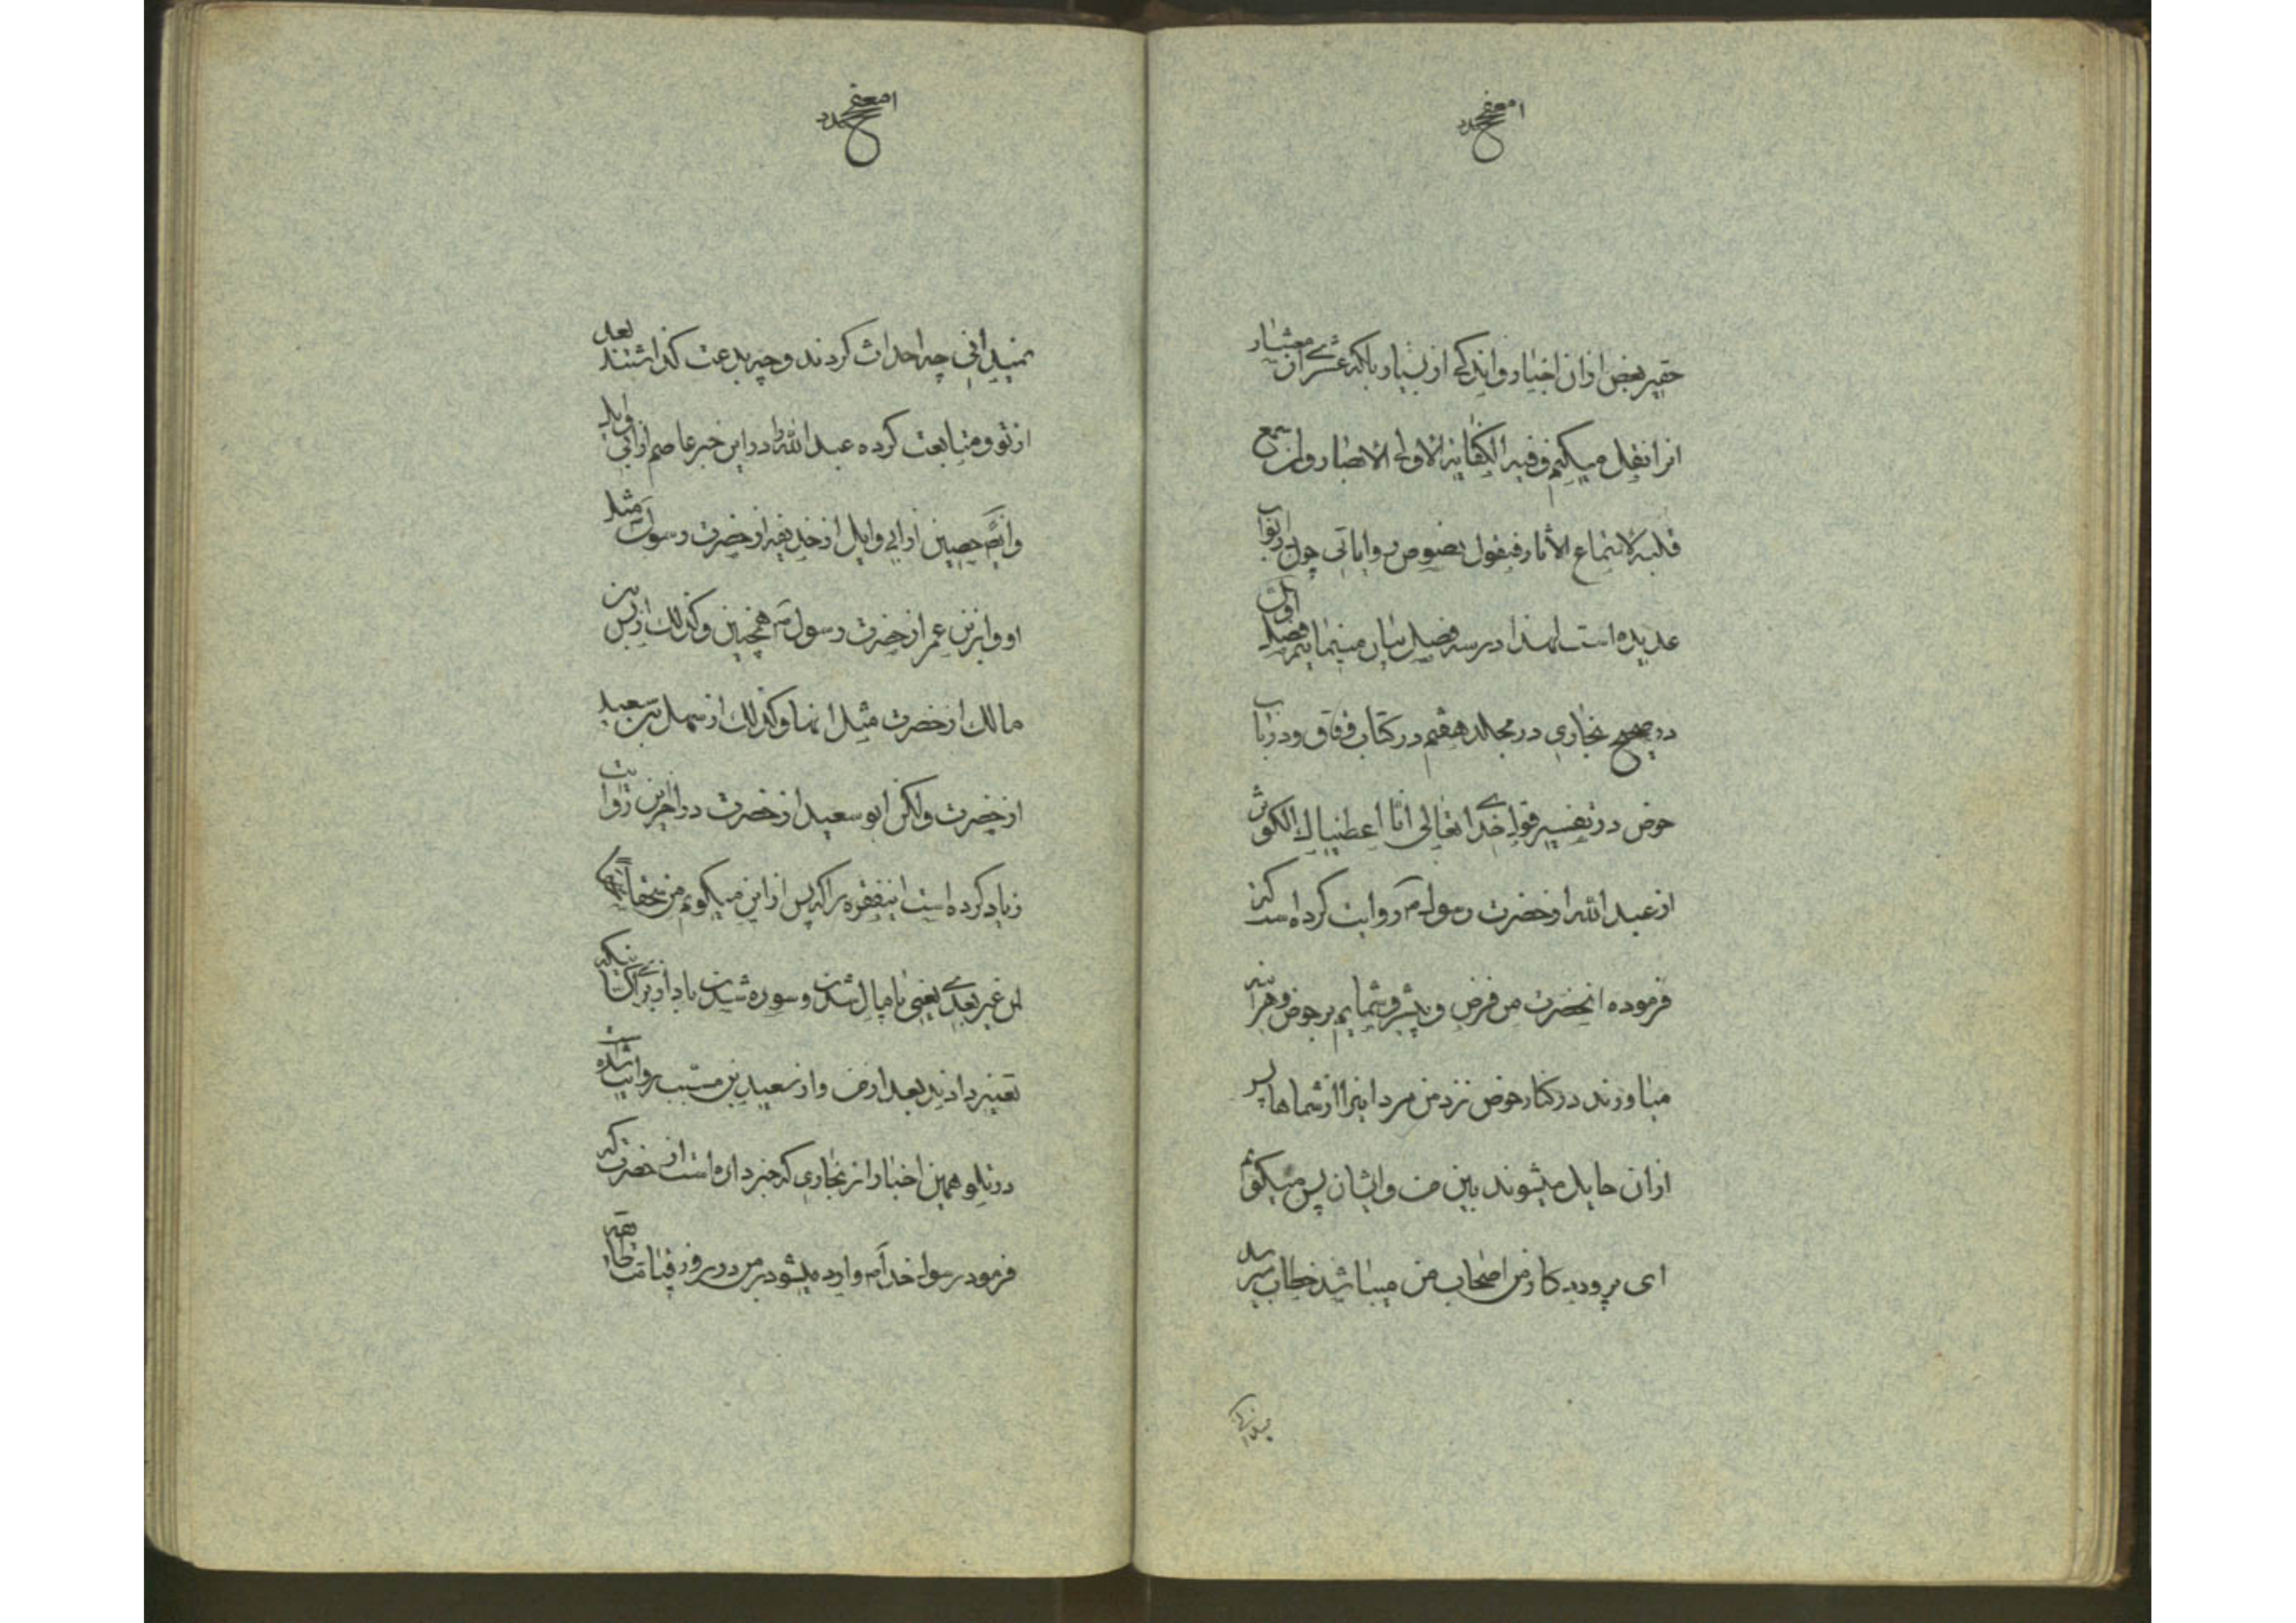 حقیر بعض از ان اخبار و اندکی از بسیار بلکه عشری از معشار
انرا نقل میکنم و فیه الکفایة لاولی الابصار و لمن سمع
قلبه لاستماع الاثار فیقول نصوص و روایاتی چون در ابواب
عدیده است لهذا در سه فصل بیان مینمایم فصل اول
در صحیح بخاری در مجلد هفتم در کتاب رقاق و در باب
حوض در تفسیر قول خدایتعالی انا اعطیناك الکوثر
از عبد الله از حضرت رسول روایت کرده است که
فرموده انحضرت من فرط و پیشرو شمایم بر حوض و هراینه
میاورند در کنار حوض نزد من مردانیرا از شماها پس
از ان حایل میشوند بین من و ایشان پس میگویم
ای پروردکار من اصحاب من میباشند خطاب میرسد
نمیدانی چه احداث کردند و چه بدعت کذاشتند بعد
از تو و متابعت کرده عبد الله را در این خبر عاصم از ابی وایل
و ایضا حصین از ابی وایل از حذیفه از حضرت رسول مثل
او و ابن عمر از حضرت رسول همچنین و کذلك از انس بن
مالك از حضرت مثل انها و کذلك از سهل بن سعید
از حضرت ولکن ابو سعید از حضرت در اخر این روایت
زیاد کرده است اینفقره را که پس از این میکویم من سحقا سحقا
لمن غیر بعدی یعنی پامال شدن و سوده شدن باد از برای کسانیکه
تغییر دادند بعد از من و از سعید بن مسیب روایت شده است
در تلو همین اخبار از بخاری که خبر داده است از حضرت که
فرمود رسول خدا وارد میشود بر من در روز قیامت طایفه